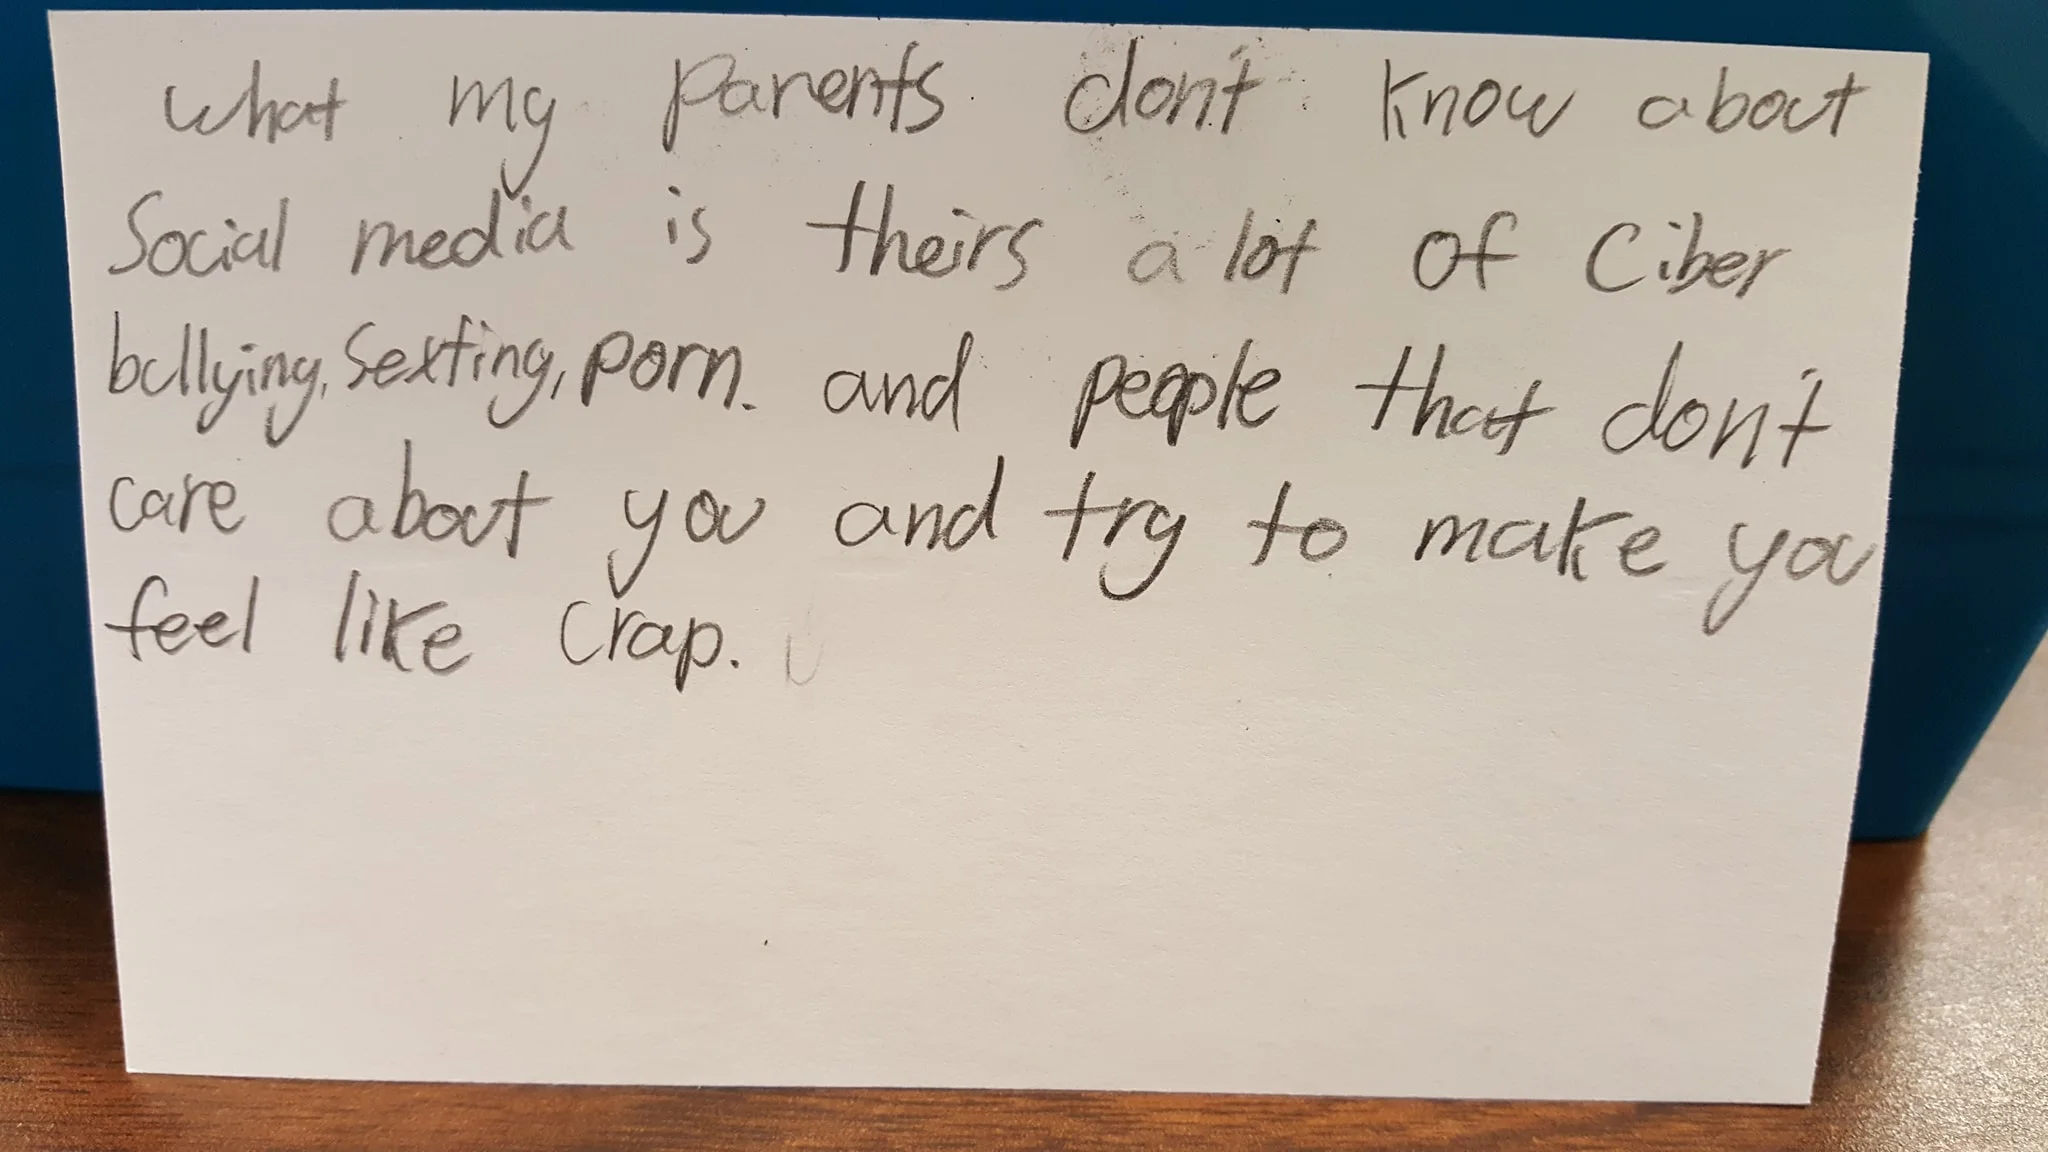 what my parents don't know about
Social media is theirs a lot of Ciber
bullying, Sexting, porn. and people that don't
care about you and try to make you
feel like crap.